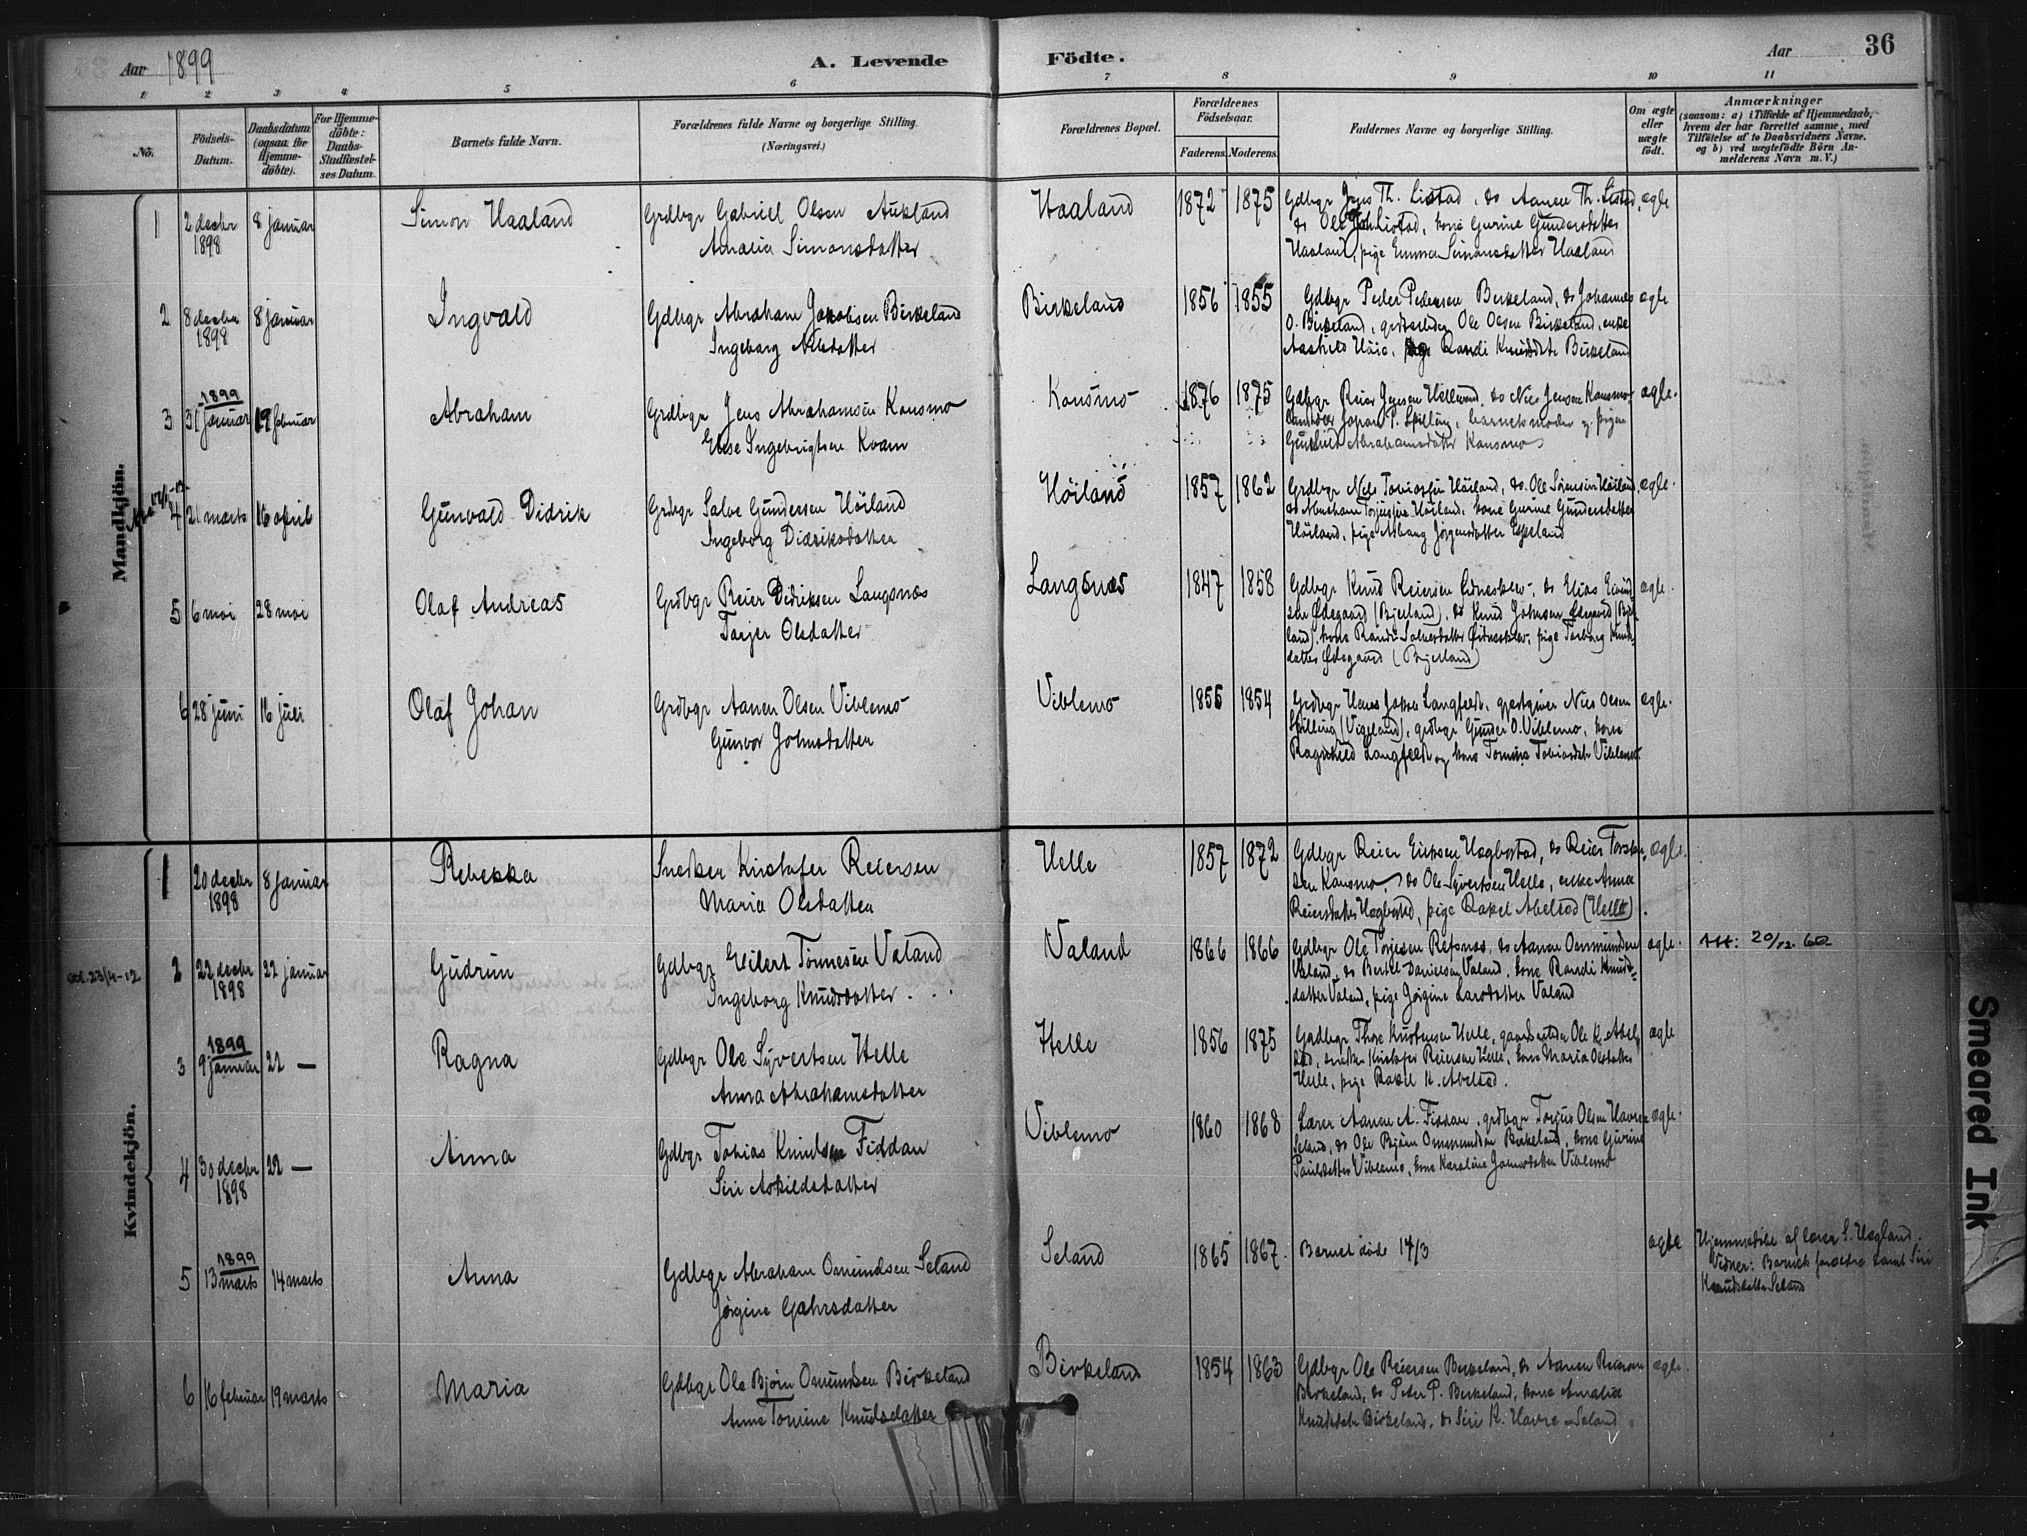 Aar 1899
A. Levende
Födte.
Aar
36
1 2 3 4 5 6 7 8 9 10 11
No.
Födsels-
Datum.
Daabsdatum
(ogsaa for
Hjemme-
döbte).
For Hjemme-
döbte:
Daabs-
Stadfæstel-
ses Datum.
Barnets fulde Navn.
Forældrenes fulde Navne og borgerlige Stilling.
(Næringsvei.)
Forældrenes Bopæl.
Forældrenes
Födselsaar.
Faderens. Moderens.
Faddernes Navne og borgerlige Stilling.
Om ægte
eller
uægte
födt.
Anmærkninger
(saasom: a) i Tilfælde af Hjemmedaab,
hvem der har forrettet samme, med
Tilföielse af to Daabsvidners Navne.
og b) ved uægtefödte Börn An-
melderens Navn m. V.)
Mandkjön.
1 2 decbr 1898 8 januar Simon Haaland Grdbgr Gabriel Olsen Aukland
Amalia Simonsdatter
Haaland 1872 1875 Gdbgr Jens Th. Listad, do Aanen Th. Listad,
do Ole Listad, kone Gurine Gundersdatter
Haaland, pige Emma Simonsdatter Haaland
ægte
2 8 decbr 1898 8 januar Ingvald Gdbgr Abraham Jakobsen Birkeland
Ingeborg Nilsdatter
Birkeland 1856 1855 Gdbgr Peder Pedersen Berkeland, do Johannes
O. Birkeland, Ole Olsen Birkeland, enke
Randi Birkeland
ægte
3 1899 31 januar 19 februar Abraham Grdbgr Jens Abrahamsen Konsmo
Else Ingebrigtsen Kvam
Konsmo 1876 1875 Gdbgr Reier Jensen do Nils Jensen Konsmo
Johan P. Spilling, barnets moder og pigen
Gunhild Abrahamsdatter Konsmo
ægte.
4 21 marts 16 april Gunvald Didrik Grdbgr Salve Gundersen Höiland
Ingeborg Didriksdatter
Höiland 1857 1862 Grdbgr Nils Tobiassen Höiland, do Ole Sörensen Höiland,
do Abraham Torjussen Höiland, kone Gurine Gundersdatter
Höiland, pige Aslaug Jörgensdatter Eppeland
ægte.
5 6 mai 28 mai Olaf Andreas Grdbgr Reier Didriksen Langsnæs
Torjer Olsdatter
Langsnæs 1847 1858 Gdbgr Knud Reiersen do Elias Eivind-
sen Ödegaard (Bjelland), do Knud Johnsen Ödegaard (Bjel-
land), kone Randi Salvesdatter pige Torborg Knud-
datter Ödegaard (Bjelland)
ægte.
6 28 juni 16 juli Olaf Johan Grdbgr Aanen Olsen Viblemo
Gunvor Johnsdatter
Viblemo 1855 1854 Grdbgr Langfeldt, gjestgiver Nils Olsen
Spilling (Vigeland), grdbgr Gunder O. Viblemo, kone
Ragnhild Langfeldt og kone Tomine Tobiasdatr Viblemo
ægte.
Kvindekjön.
1 20 decbr 1898 8 januar Rebekka Snedker Kristofer Reiersen
Maria Olsdatter
Helle 1857 1872 Gdbgr Reier Eriksen Hægbostad, do Reier
sen Konsmo, do Ole Syvertsen Helle, enke Anna
Reiersdatter Hægbostad, pige Rakel Abelsod (Helle).
ægte.
conf. 23/4-12
2 22 decbr 1898 22 januar Gudrun Gdbgr Eilert Tönnesen Valand
Ingeborg Knudsdatter.
Valand 1866 1866 Gdbgr Ole Torjesen Refsnes, do Aanen Ommundsen
Valand, do Bertel Danielsen Valand, kone Randi Knuds-
datter Valand, pige Jörgine Larsdatter Valand
ægte.
Att: 20/12 60
3 1899 9 januar 22 — Ragna Gdbgr Ole Syvertsen Helle
Anna Abrahamsdatter
Helle 1856 1875 Gaardbgr Thore Knudsen Helle, Ole K. Abel-
snedker Kristofer Reiersen Helle, kone Maria Olsdatter
Helle, pige Rakel K. Abelsod.
ægte
4 30 decbr 1898 22 — Anna Gdbgr Tobias Knudsen Fiddan
Siri Askildsdatter
Viblemo 1860 1868 Lærer Aanen A. Fiddan, grdbgr Torjus Olsen Havre-
seland, do Ole Bjørn Ommundsen Birkeland, kone Gurine
Paulsdatter Viblemo, kone Karoline Johnsdatter Viblemo
ægte.
5 1899 13 marts 14 marts Anna Gdbgr Abraham Omundsen Seland
Jörgine Gahrsdatter
Seland 1865 1867. Barnet döde 14/3 ægte
Hjemmedöbt af lærer S. Hægland.
Vidner: Barnets forældre samt Siri
Knudsdatter Seland
6 16 februar 19 marts Maria Gdbgr Ole Bjørn Omundsen Birkeland
Anne Tomine Knudsdatter
Birkeland 1854 1863 Gdbgr Ole Reiersen Berkeland, do Aanen Reiersen
Birkeland, do Peter P. Berkeland, kone Amalia
Knudsdatr Birkeland, do Siri K. Havre-Seland
ægte.
Smeared Ink